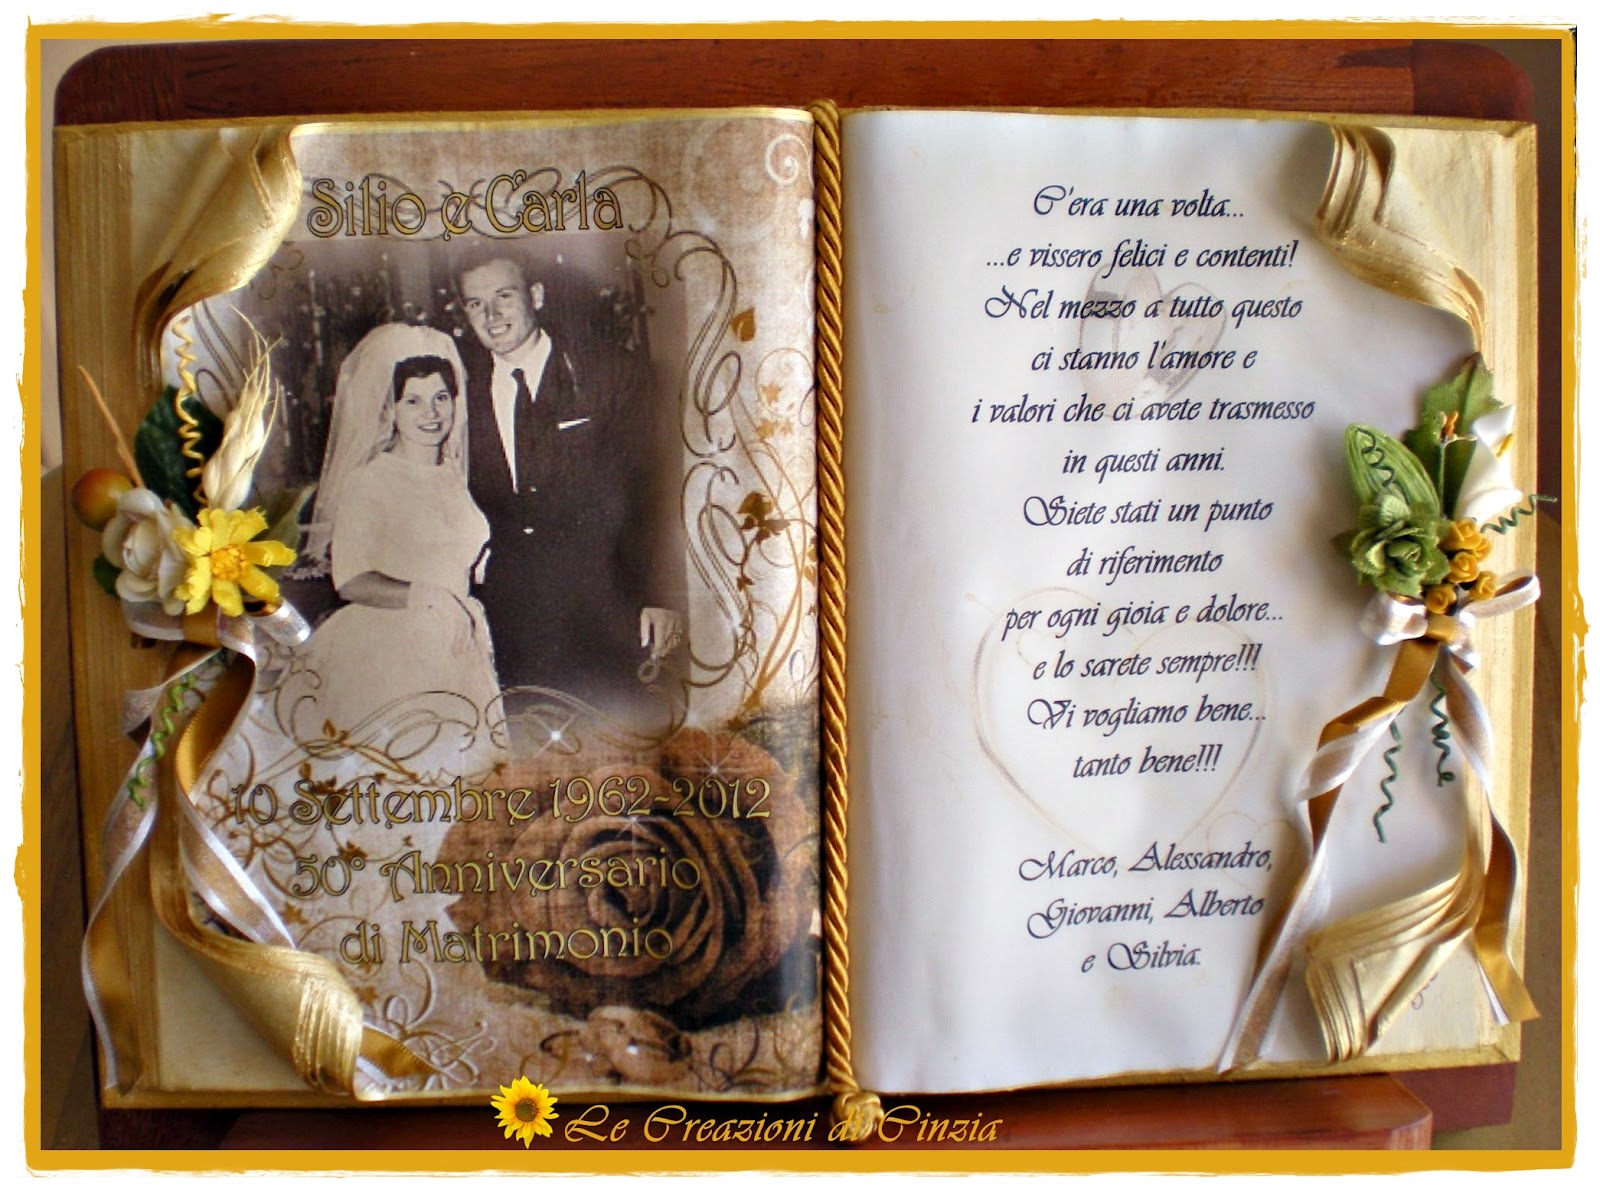 Silio e Carla
10 Settembre 1962-2012
50° Anniversario
di Matrimonio
C'era una volta...
...e vissero felici e contenti!
Nel mezzo a tutto questo
ci stanno l'amore e
i valori che ci avete trasmesso
in questi anni.
Siete stati un punto
di riferimento
per ogni gioia e dolore...
e lo sarete sempre!!!
Vi vogliamo bene...
tanto bene!!!
Marco, Alessandro,
Giovanni, Alberto
e Silvia.
Le Creazioni di Cinzia